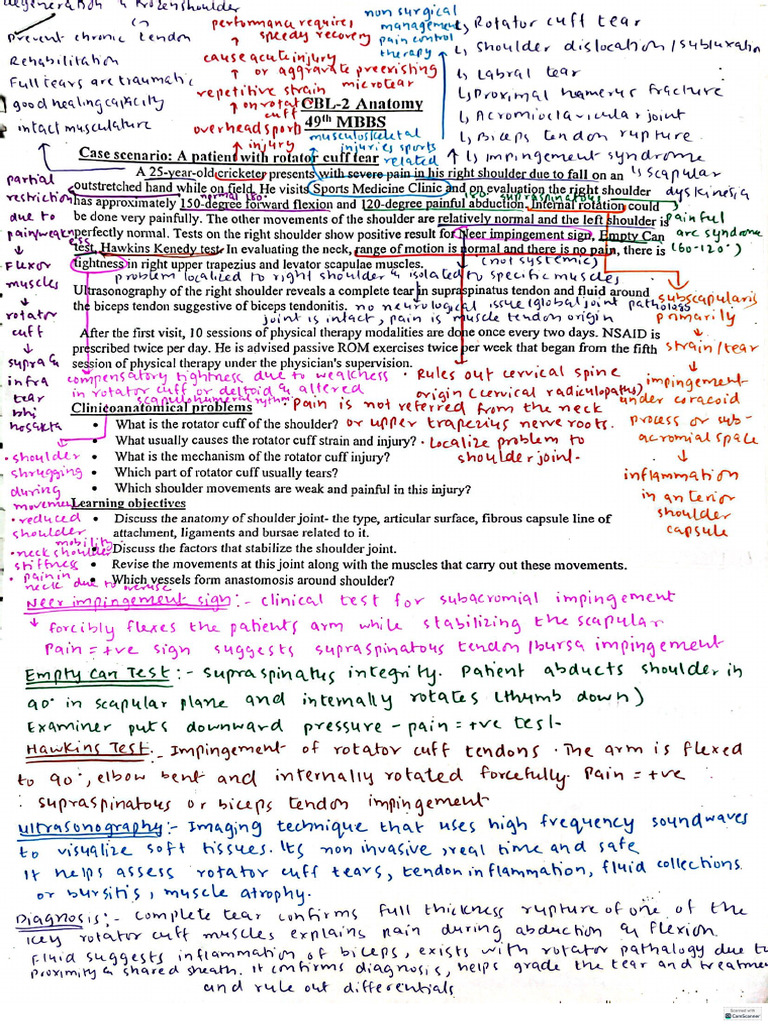 degeneration & frozen shoulder
prevent chronic tendon
Rehabilitation
Full tears are traumatic
good healing capacity
intact musculature
performance requires
speedy recovery
cause acute injury
or aggravate preexisting
microtear
repetitive strain
on rotator
cuff
overhead sport
injury
non surgical
management
pain control
therapy
musculoskeletal
injuries sports
related
Rotator cuff tear
Shoulder dislocation / subluxation
Labral tear
Proximal humerus fracture
Acromioclavicular joint
Biceps tendon rupture
Impingement syndrome
scapular
dyskinesia
painful
arc syndrome
(60-120°)
CBL-2 Anatomy
49th MBBS
Case scenario: A patient with rotator cuff tear
A 25-year-old cricketer presents with severe pain in his right shoulder due to fall on an
outstretched hand while on field. He visits Sports Medicine Clinic and on evaluation the right shoulder
normal 180°
supraspinatus
has approximately 150-degree forward flexion and 120-degree painful abduction. Internal rotation could
be done very painfully. The other movements of the shoulder are relatively normal and the left shoulder is
perfectly normal. Tests on the right shoulder show positive result for Neer impingement sign, Empty Can
test, Hawkins Kenedy test. In evaluating the neck, range of motion is normal and there is no pain, there is
tightness in right upper trapezius and levator scapulae muscles.
(not systemic)
problem localized to right shoulder & isolated to specific muscles
Ultrasonography of the right shoulder reveals a complete tear in supraspinatus tendon and fluid around
the biceps tendon suggestive of biceps tendonitis.
no neurological issue / global joint pathology
joint is intact, pain is muscle tendon origin
After the first visit, 10 sessions of physical therapy modalities are done once every two days. NSAID is
prescribed twice per day. He is advised passive ROM exercises twice per week that began from the fifth
session of physical therapy under the physician's supervision.
partial
restriction
due to
pain/weakness
flexor
muscles
rotator
cuff
supra &
infra
tear
bhi
hosakta
subscapularis
primarily
strain/tear
impingement
under coracoid
process or sub-
acromial space
inflammation
in anterior
shoulder
capsule
compensatory tightness due to weakness
in rotator cuff or deltoid & altered
scapulohumeral rhythm
• Rules out cervical spine
origin (cervical radiculopathy)
• Pain is not referred from the neck
or upper trapezius nerve roots.
• Localize problem to
shoulder joint-
Clinicoanatomical problems
• What is the rotator cuff of the shoulder?
• What usually causes the rotator cuff strain and injury?
• What is the mechanism of the rotator cuff injury?
• Which part of rotator cuff usually tears?
• Which shoulder movements are weak and painful in this injury?
• shoulder
shrugging
during
movement
• reduced
shoulder
mobility
• neck shoulder
stiffness
• pain in
neck due to overuse
Learning objectives
• Discuss the anatomy of shoulder joint- the type, articular surface, fibrous capsule line of
attachment, ligaments and bursae related to it.
• Discuss the factors that stabilize the shoulder joint.
• Revise the movements at this joint along with the muscles that carry out these movements.
• Which vessels form anastomosis around shoulder?
Neer impingement sign:- clinical test for subacromial impingement
forcibly flexes the patients arm while stabilizing the scapular
Pain = +ve sign suggests supraspinatous tendon/bursa impingement
Empty Can Test:- supraspinatus integrity. Patient abducts shoulder in
90° in scapular plane and internally rotates (thumb down)
Examiner puts downward pressure - pain = +ve test-
Hawkins Test:- Impingement of rotator cuff tendons. The arm is flexed
to 90°, elbow bent and internally rotated forcefully. Pain = +ve
supraspinatous or biceps tendon impingement
Ultrasonography:- Imaging technique that uses high frequency soundwaves
to visualize soft tissues. Its non invasive, real time and safe
It helps assess rotator cuff tears, tendon inflammation, fluid collections
or bursitis, muscle atrophy.
Diagnosis:- complete tear confirms full thickness rupture of one of the
key rotator cuff muscles explains pain during abduction & flexion
Fluid suggests inflammation of biceps, exists with rotator pathology due to
proximity & shared sheath. It confirms diagnosis, helps grade the tear and treatment
and rule out differentials
Scanned with
CamScanner